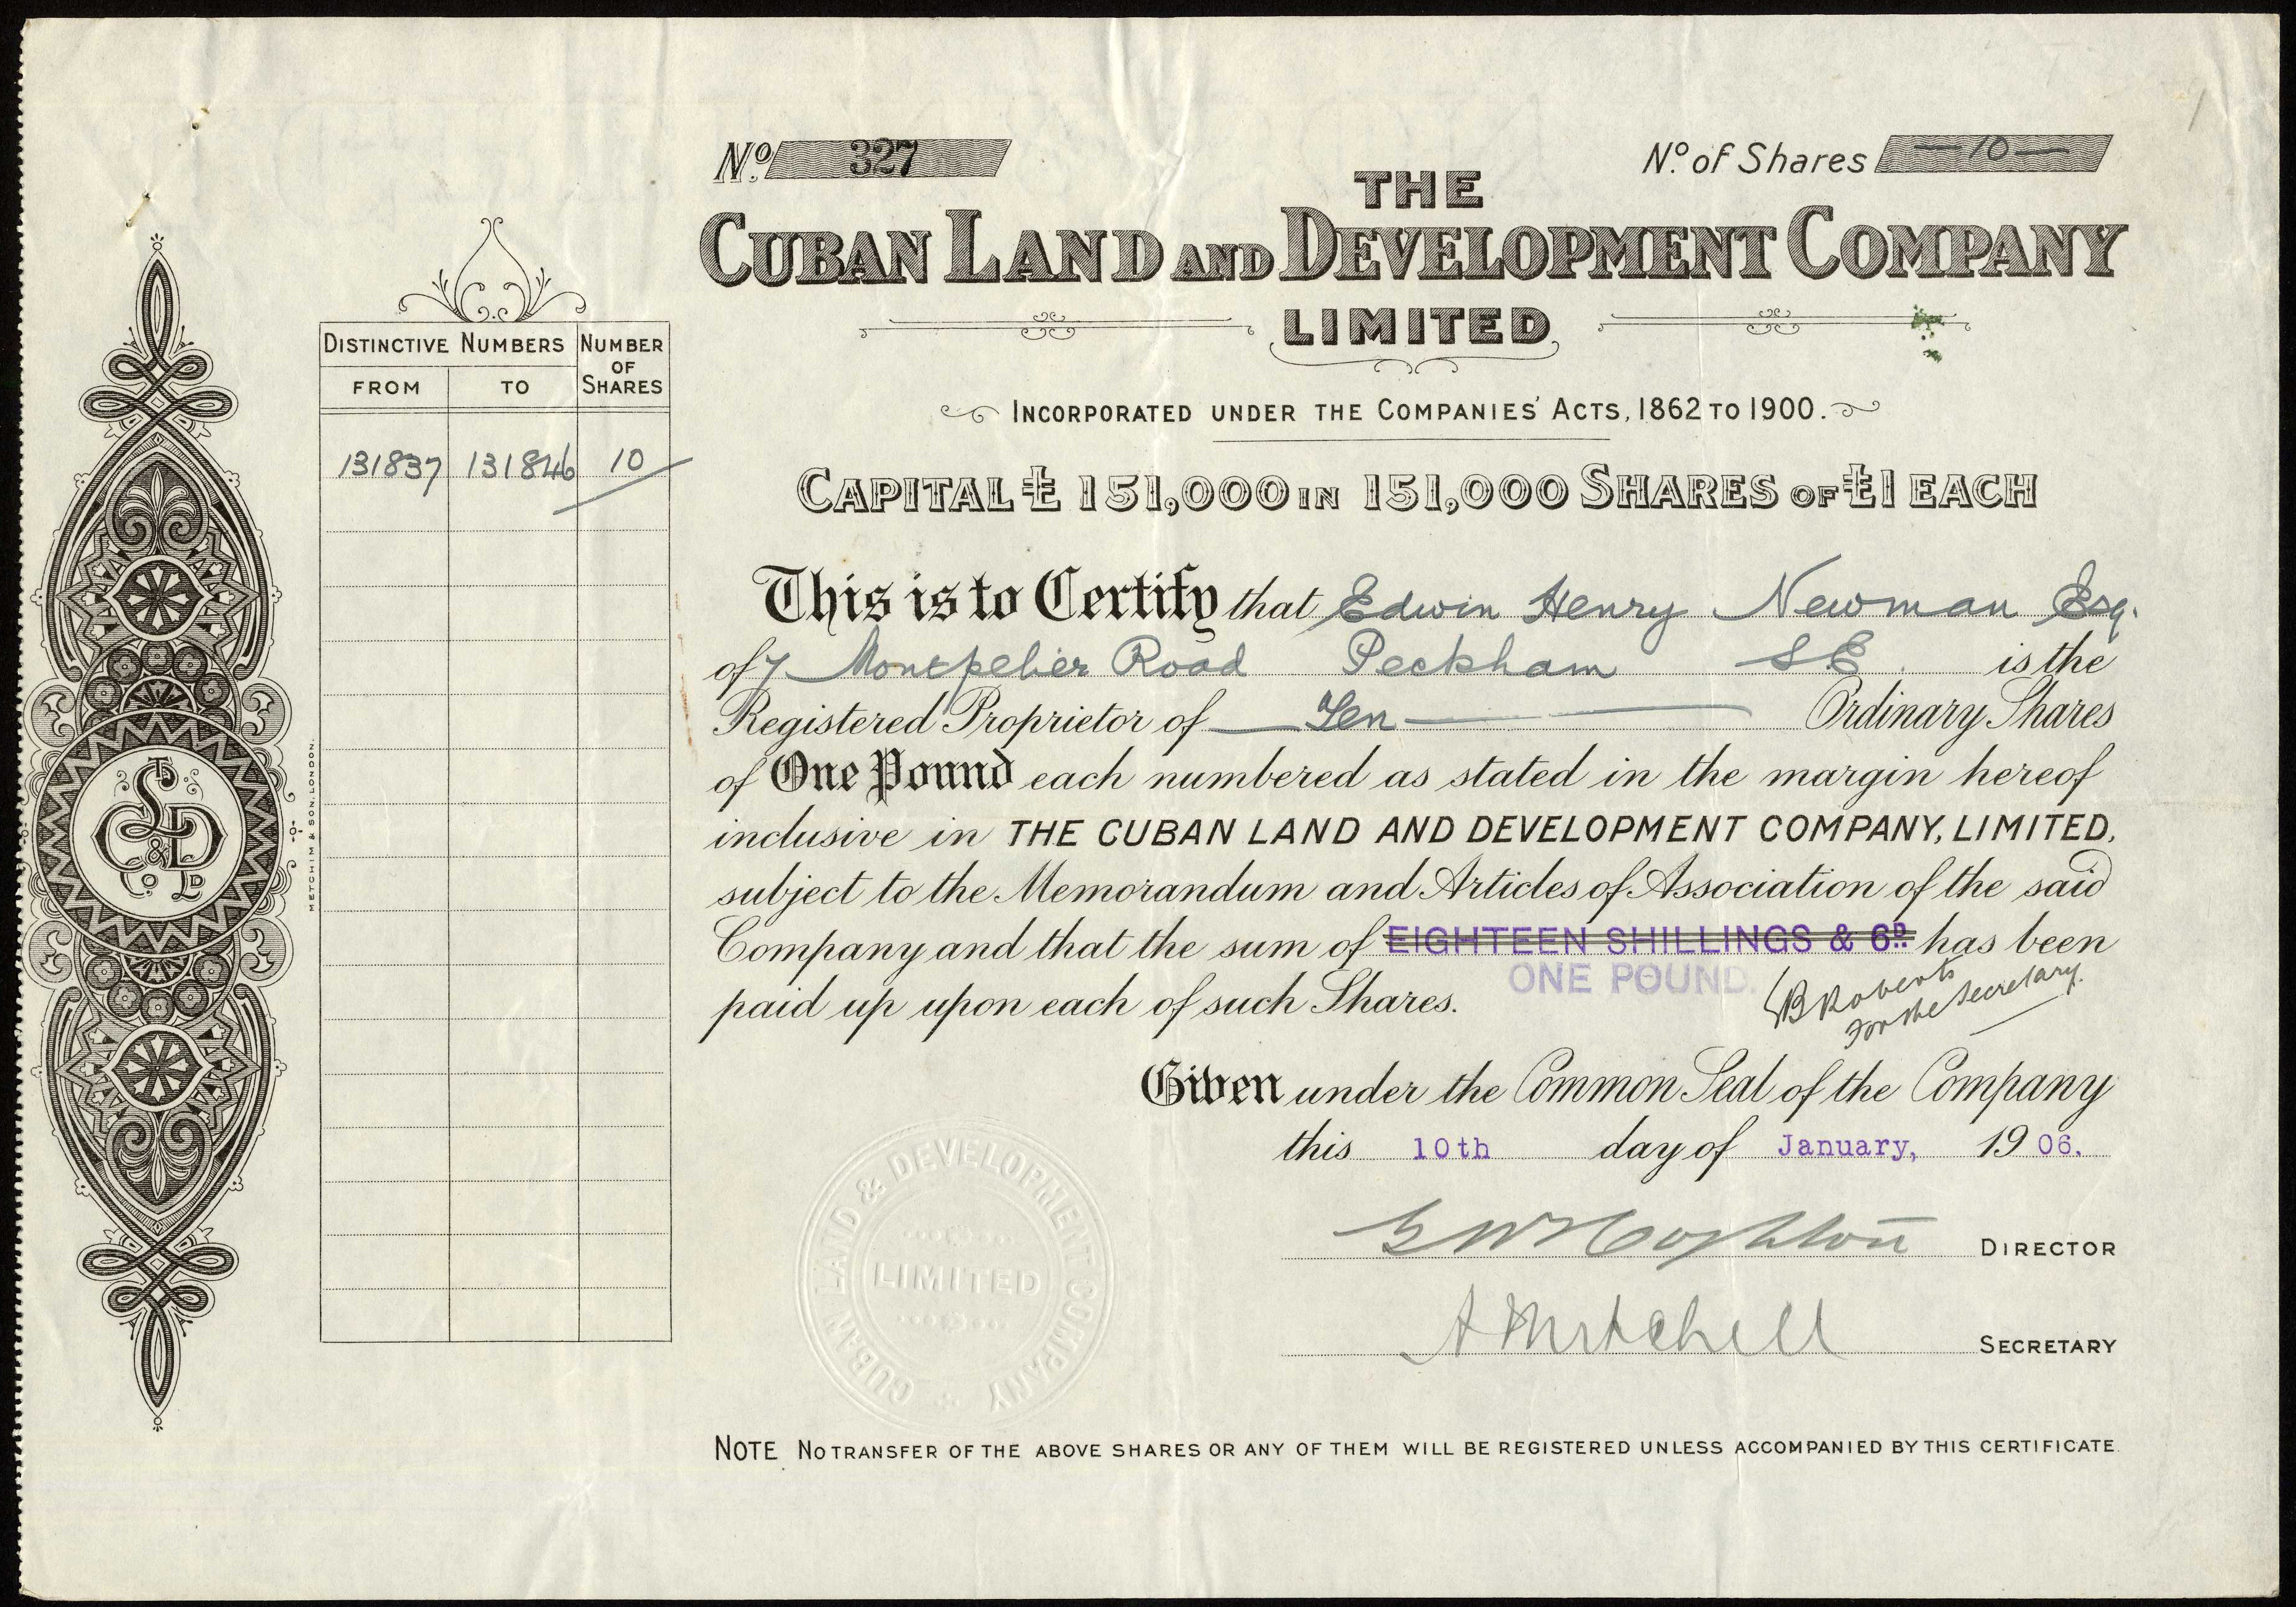 No. 327
No. of Shares — 10 —
THE
CUBAN LAND AND DEVELOPMENT COMPANY
LIMITED
INCORPORATED UNDER THE COMPANIES' ACTS, 1862 TO 1900.
CAPITAL £151,000 IN 151,000 SHARES OF £1 EACH
DISTINCTIVE NUMBERS NUMBER OF SHARES
FROM TO
131837 131846 10
METCHIM & SON. LONDON.
This is to Certify that Edwin Henry Newman Esq.
of 7 Montpelier Road Peckham S.E. is the
Registered Proprietor of Ten Ordinary Shares
of One Pound each numbered as stated in the margin hereof
inclusive in THE CUBAN LAND AND DEVELOPMENT COMPANY, LIMITED,
subject to the Memorandum and Articles of Association of the said
Company and that the sum of EIGHTEEN SHILLINGS & 6D. has been
ONE POUND.
paid up upon each of such Shares.
B Roberts
For the Secretary.
Given under the Common Seal of the Company
this 10th day of January, 1906.
DIRECTOR
A Mitchell SECRETARY
CUBAN LAND & DEVELOPMENT COMPANY
LIMITED
NOTE NO TRANSFER OF THE ABOVE SHARES OR ANY OF THEM WILL BE REGISTERED UNLESS ACCOMPANIED BY THIS CERTIFICATE.